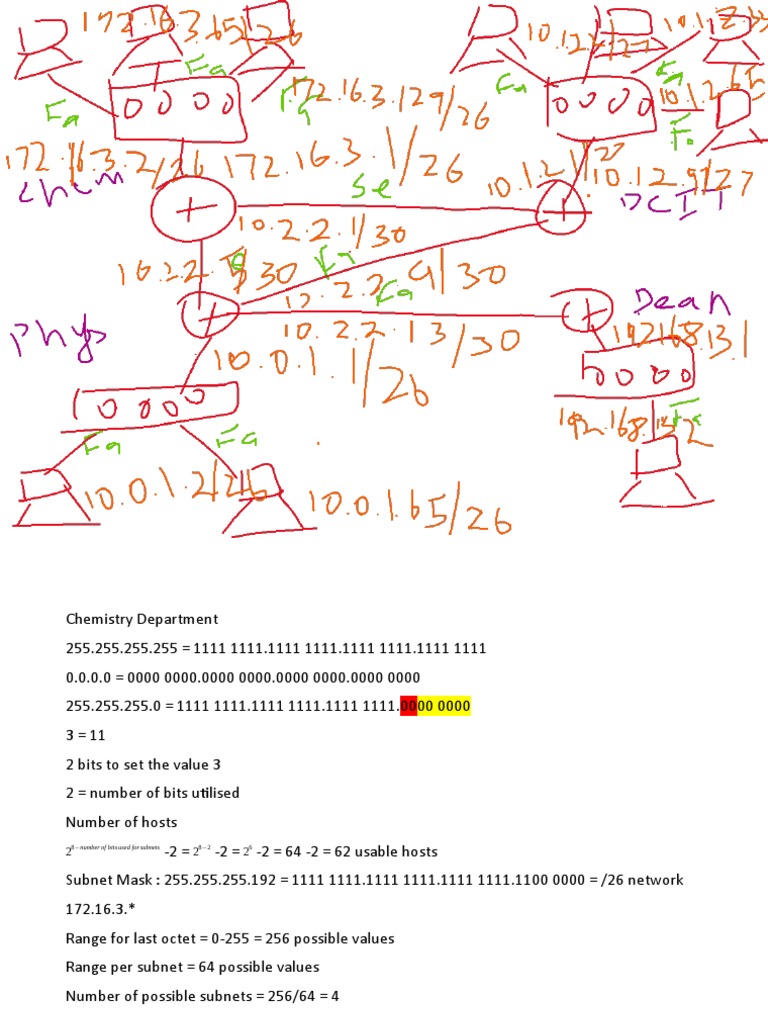 172.16.3.65/26
10.1.2
Fa
Fa
Fa
172.16.3.129/26
Fa
Fa
10.1.2.65
Fa
172.16.3.2/26
172.16.3.1/26
10.1.2.1/27
10.1.2.9/27
Chem
Se
DCIT
10.2.2.1/30
10.2.2.5/30
Fa
10.2.2.9/30
Fa
Dean
Phys
10.2.2.13/30
192.168.13.1
10.0.1.1/26
Fa
Fa
192.168.13.2
Fa
10.0.1.2/26
10.0.1.65/26
Chemistry Department
255.255.255.255 = 1111 1111.1111 1111.1111 1111.1111 1111
0.0.0.0 = 0000 0000.0000 0000.0000 0000.0000 0000
255.255.255.0 = 1111 1111.1111 1111.1111 1111.0000 0000
3 = 11
2 bits to set the value 3
2 = number of bits utilised
Number of hosts
2^8 – number of bits used for subnets -2 = 2^8 – 2 -2 = 2^6 -2 = 64 -2 = 62 usable hosts
Subnet Mask : 255.255.255.192 = 1111 1111.1111 1111.1111 1111.1100 0000 = /26 network
172.16.3.*
Range for last octet = 0-255 = 256 possible values
Range per subnet = 64 possible values
Number of possible subnets = 256/64 = 4